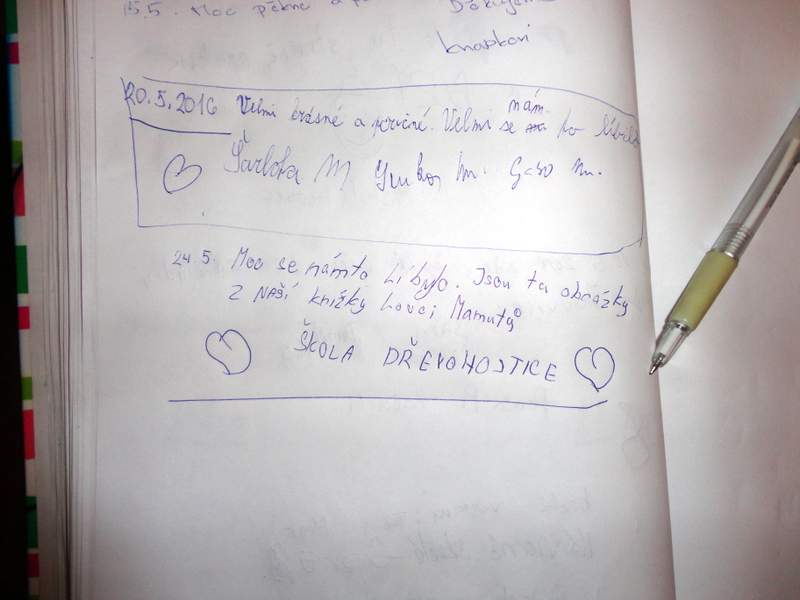 15.5. Moc pěkné a
Děkujem
20.5.2016 Velmi krásné a poučné. Velmi se nám to líbilo
Šarlota M Gabo m.
24 5. Moc se námto Líbylo. Jsou ta obrázky
z NAŠÍ knížky Lovci Mamutů
ŠKOLA DŘEVOHOSTICE